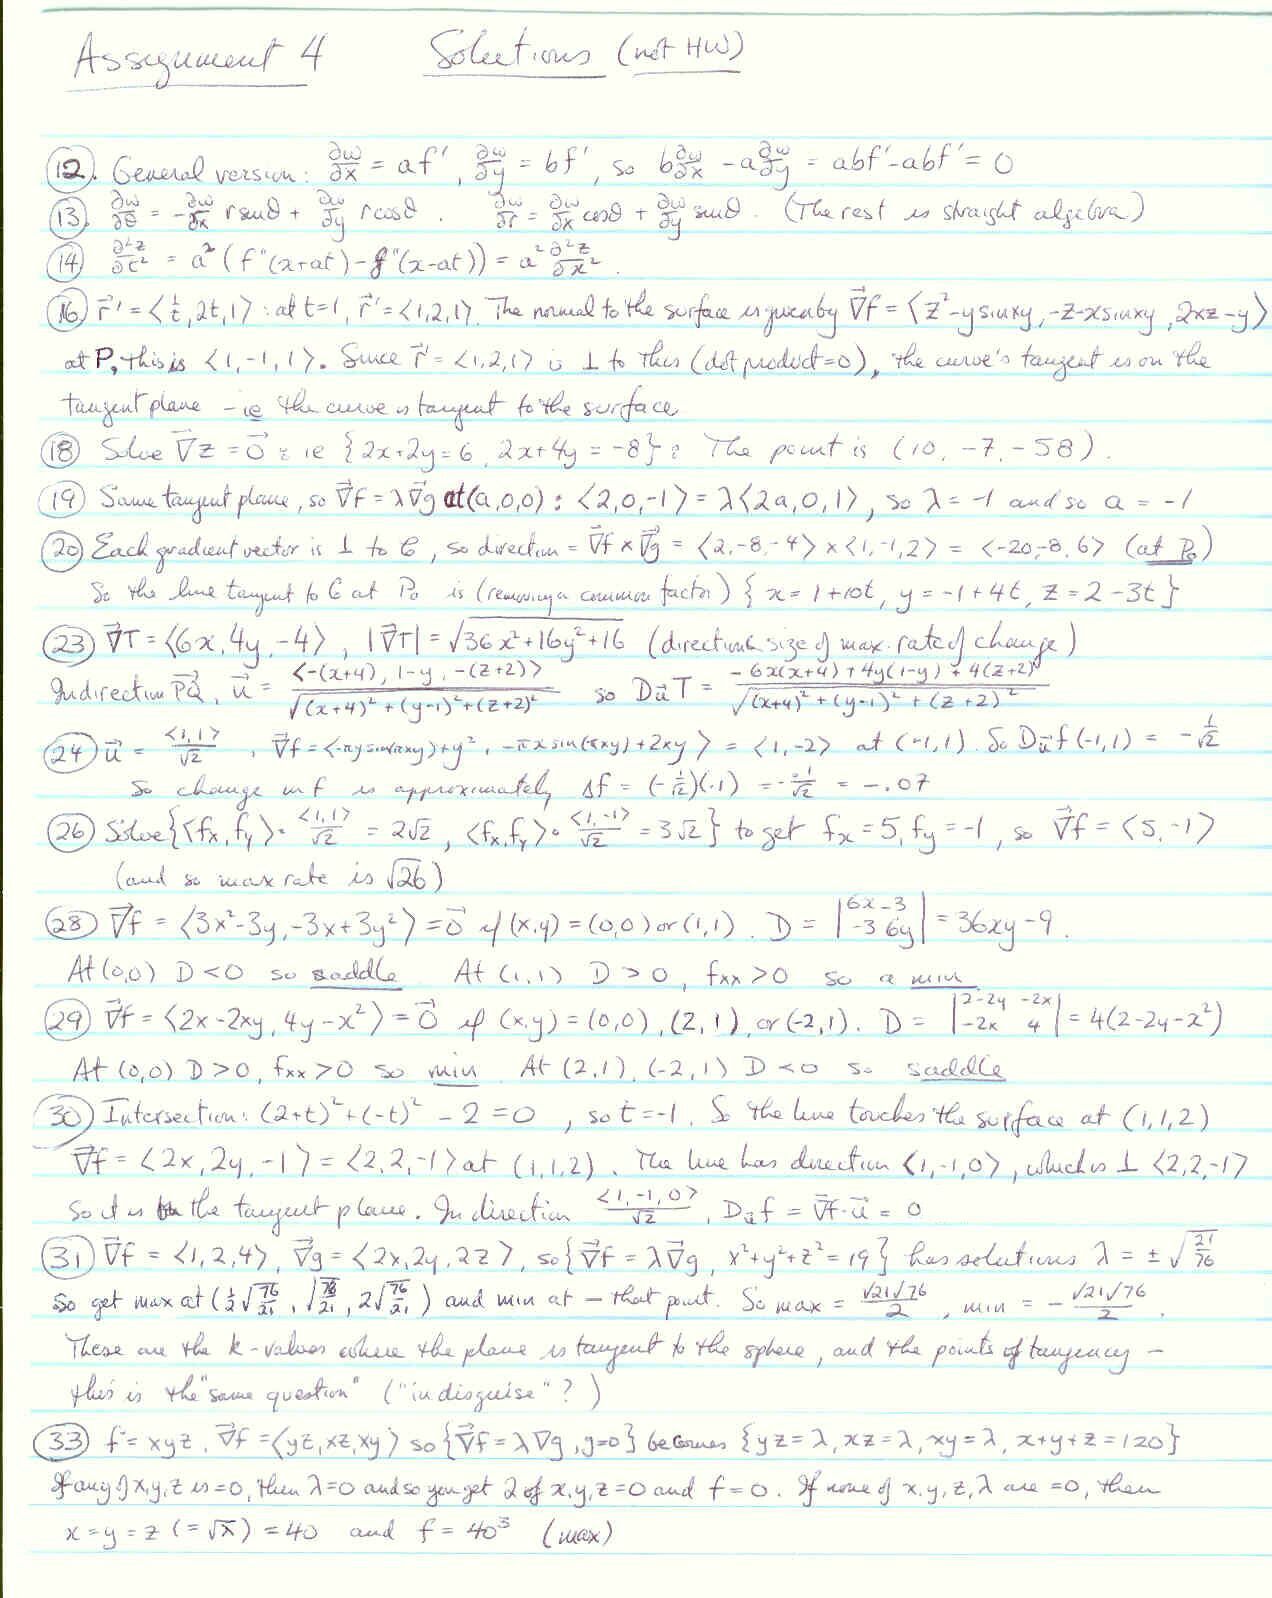 Assignment 4 Solutions (not HW)
12. General version: ∂w/∂x = af', ∂w/∂y = bf', so b∂w/∂x - a∂w/∂y = abf'-abf' = 0
13. ∂w/∂θ = -∂w/∂x rsinθ + ∂w/∂y rcosθ. ∂w/∂r = ∂w/∂x cosθ + ∂w/∂y sinθ. (The rest is straight algebra)
14. ∂²z/∂t² = a²(f"(x+at)-g"(x-at)) = a² ∂²z/∂x².
16. r⃗' = <1/t, 2t, 1>: at t=1, r⃗' = <1,2,1>. The normal to the surface is given by ∇⃗f = <z²-ysinxy, -z-xsinxy, 2xz-y>
at P₀ this is <1,-1,1>. Since r⃗' = <1,2,1> is ⊥ to this (dot product=0), the curve's tangent is on the
tangent plane - ie the curve is tangent to the surface
18. Solve ∇⃗z = 0⃗: ie {2x+2y=6, 2x+4y=-8}: The point is (10,-7,-58).
19. Same tangent plane, so ∇⃗f = λ∇⃗g at (a,0,0): <2,0,-1> = λ<2a,0,1>, so λ=-1 and so a = -1
20. Each gradient vector is ⊥ to C, so direction = ∇⃗f × ∇⃗g = <2,-8,-4> × <1,-1,2> = <-20,-8,6> (at P₀)
So the line tangent to C at P₀ is (removing a common factor) {x = 1+10t, y = -1+4t, z = 2-3t}
23. ∇⃗T = <6x,4y,-4>, |∇⃗T| = √(36x²+16y²+16) (direction & size of max. rate of change)
In direction PQ⃗, u⃗ = <-(x+4), 1-y, -(z+2)>/√((x+4)²+(y-1)²+(z+2)²) so D_u⃗T = (-6x(x+4)+4y(1-y)+4(z+2))/√((x+4)²+(y-1)²+(z+2)²)
24. u⃗ = <1,1>/√2, ∇⃗f = <-πysin(πxy)+y², -πxsin(πxy)+2xy> = <1,-2> at (-1,1). So D_u⃗f(-1,1) = -1/√2
So change in f is approximately Δf = (-1/√2)(.1) = -.1/√2 = -.07
26. Solve {<fx,fy>·<1,1>/√2 = 2√2, <fx,fy>·<1,-1>/√2 = 3√2} to get fx = 5, fy = -1, so ∇⃗f = <5,-1>
(and so max rate is √26)
28. ∇⃗f = <3x²-3y, -3x+3y²> = 0⃗ if (x,y) = (0,0) or (1,1). D = |6x -3 / -3 6y| = 36xy-9.
At (0,0) D<0 so saddle At (1,1) D>0, fxx>0 so a min
29. ∇⃗f = <2x-2xy, 4y-x²> = 0⃗ if (x,y) = (0,0), (2,1), or (-2,1). D = |2-2y -2x / -2x 4| = 4(2-2y-x²)
At (0,0) D>0, fxx>0 so min At (2,1), (-2,1) D<0 so saddle
30. Intersection: (2+t)²+(-t)²-2=0, so t=-1. So the line touches the surface at (1,1,2)
∇⃗f = <2x,2y,-1> = <2,2,-1> at (1,1,2). The line has direction <1,-1,0>, which is ⊥ <2,2,-1>
So it is in the tangent plane. In direction <1,-1,0>/√2, D_u⃗f = ∇⃗f·u⃗ = 0
31. ∇⃗f = <1,2,4>, ∇⃗g = <2x,2y,2z>, so {∇⃗f = λ∇⃗g, x²+y²+z²=19} has solutions λ = ±√(21/76)
So get max at (½√(76/21), √(76/21), 2√(76/21)) and min at - that point. So max = √21√76/2, min = -√21√76/2.
These are the k-values where the plane is tangent to the sphere, and the points of tangency -
this is the "same question" ("in disguise"?)
33. f = xyz, ∇⃗f = <yz,xz,xy> so {∇⃗f = λ∇g, g=0} becomes {yz=λ, xz=λ, xy=λ, x+y+z=120}
If any of x,y,z is =0, then λ=0 and so you get 2 of x,y,z=0 and f=0. If none of x,y,z,λ are =0, then
x=y=z (=√λ) = 40 and f = 40³ (max)